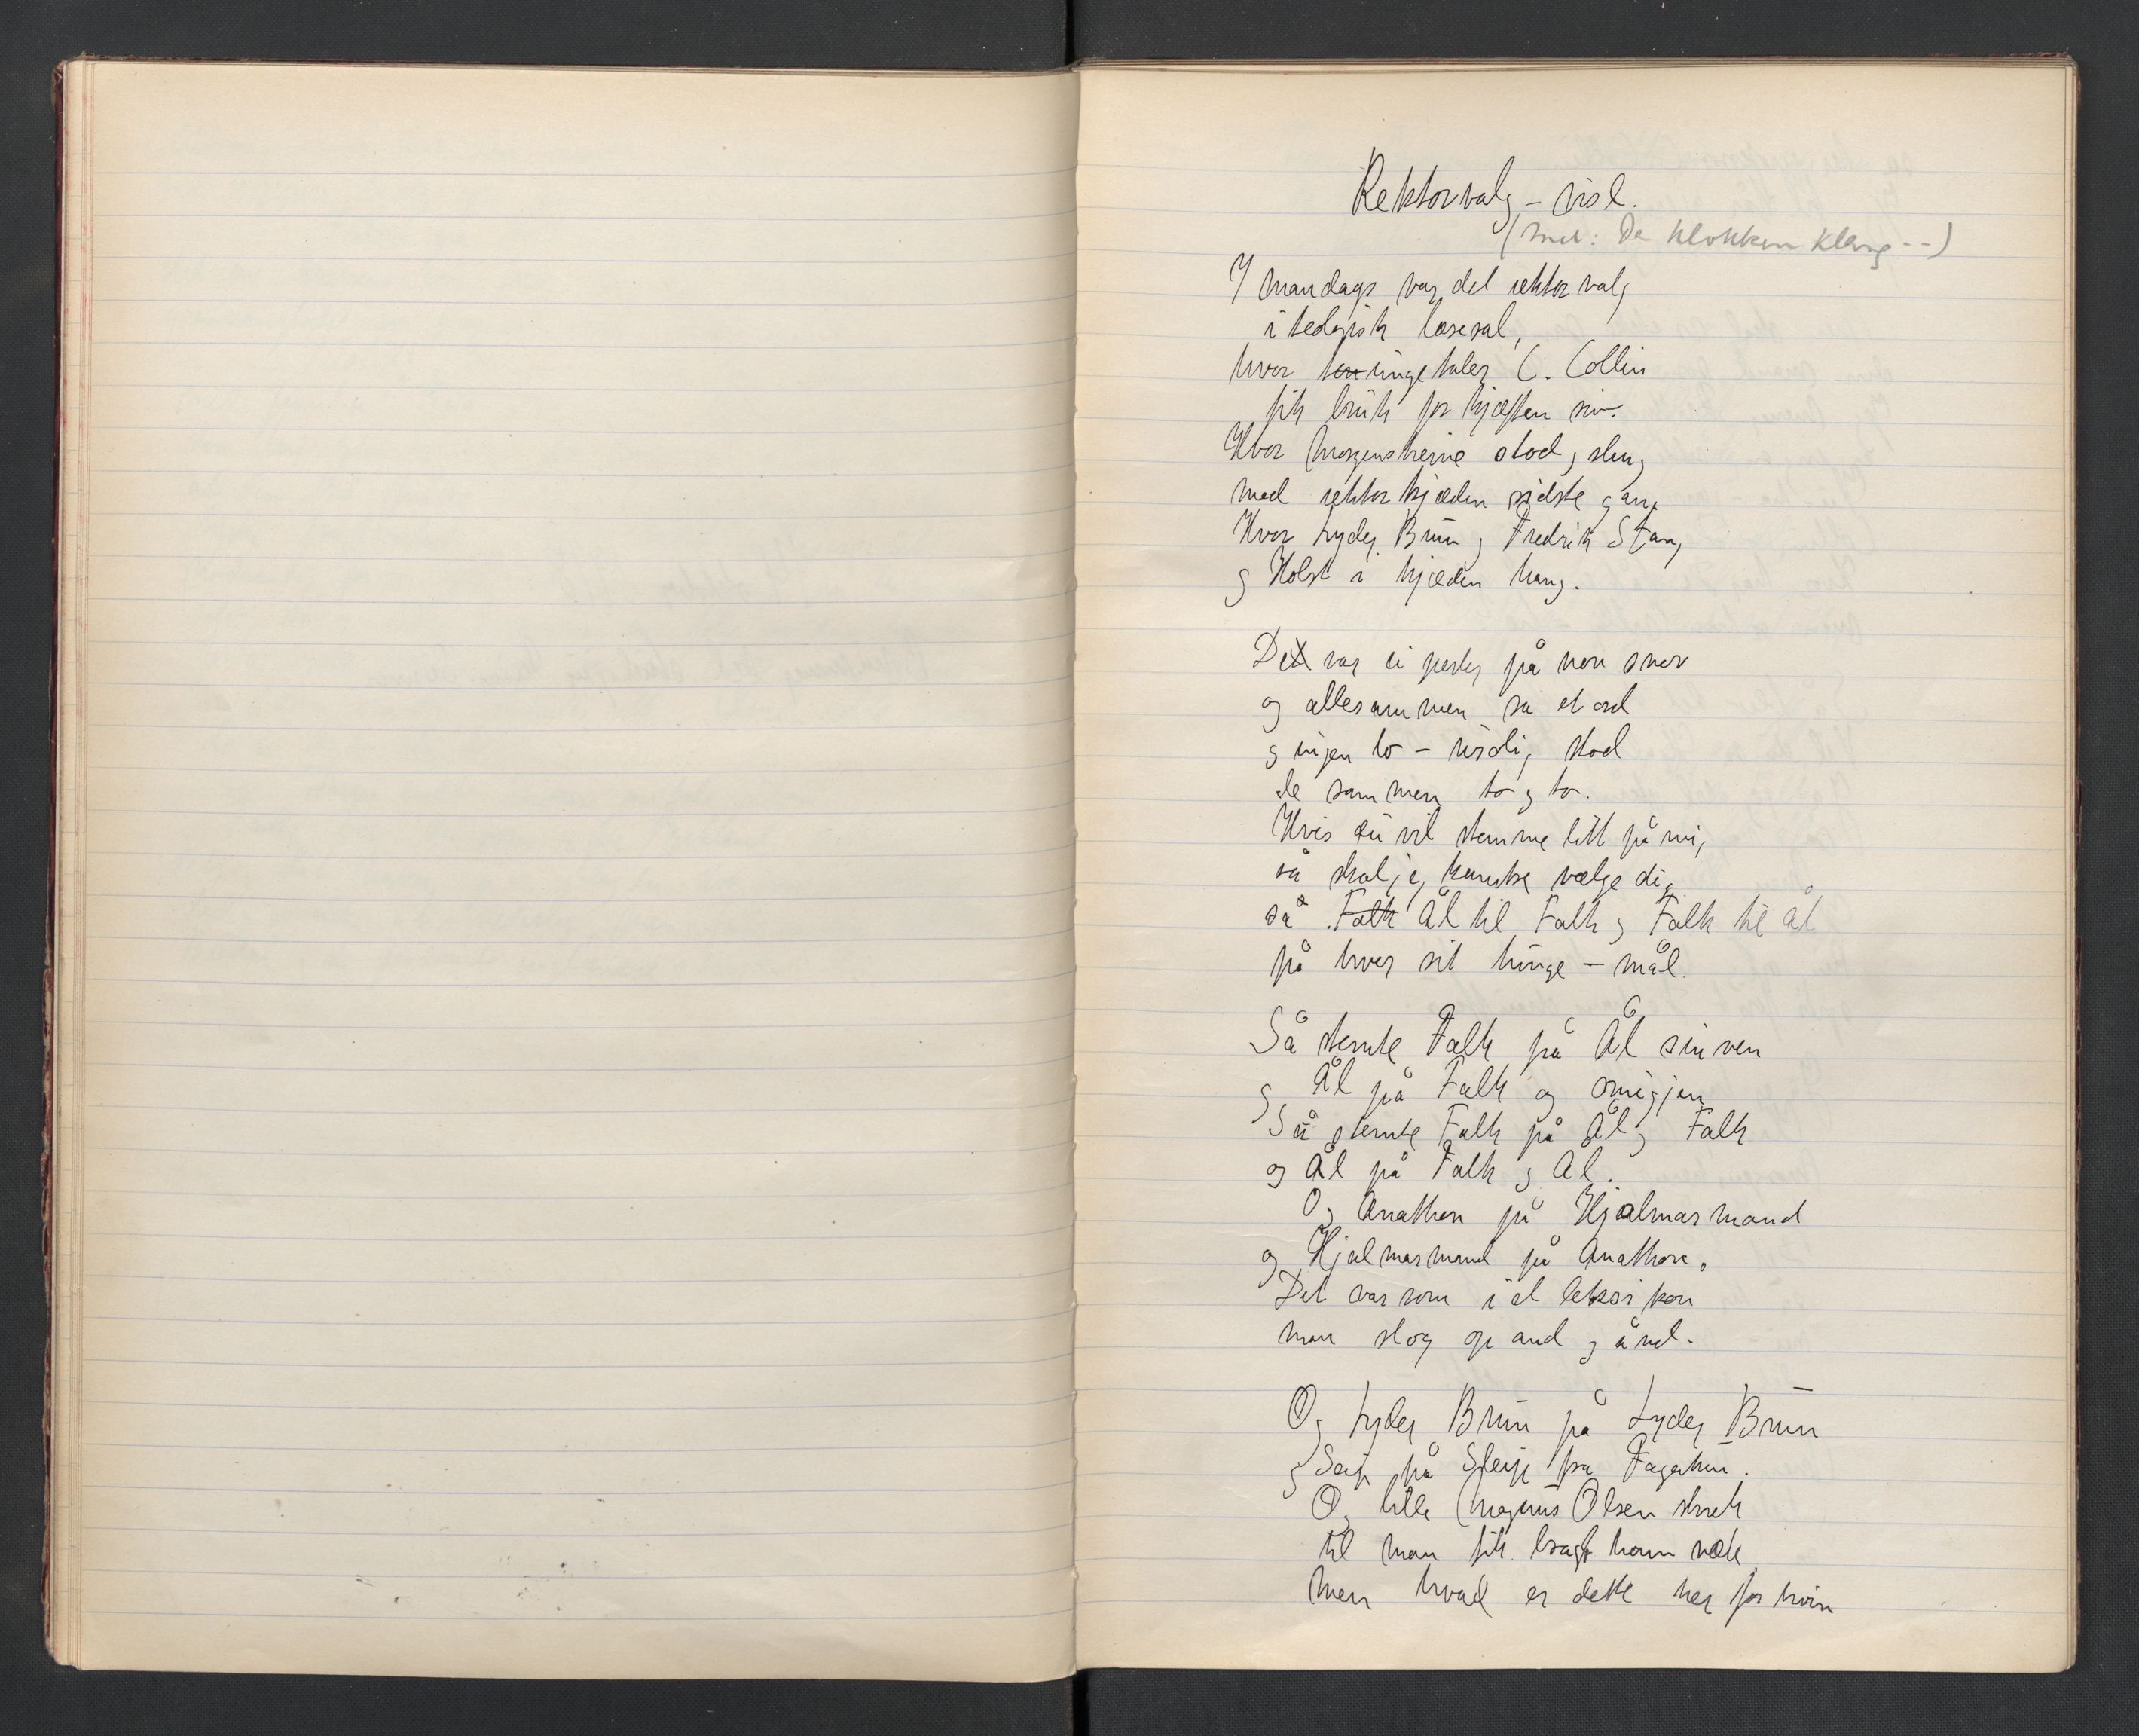 Rektorvalg - vise.
(Mel: Da klokken klang --)
I mandags var det rektorvalg
i teologisk læsesal,
hvor tungetaler C. Collin
fik bruk for kjæften sin.
Hvor Morgenstierne stod og slang
med rektorkjæden sidste gang
Hvor Lyder Brun og Fredrik Stang
og Holst i kjæden hang.
De var
på
snor
og allesammen sa et ord
og ingen to - urolig stod
de sammen to og to.
Hvis du vil stemme litt på mig
så skal jeg kanske vælge dig
så Ål til Falk og Falk til Ål
på hver sit tunge - mål.
Så stemte Falk på Ål sin ven
og Ål på Falk og om igjen
Så stemte Falk på Ål og Falk
og Ål på Falk og Ål.
Og Anathon på Hjalmar mand
og Hjalmar mand på Anathon.
Det var som i et leksikon
man slog op and og ånd.
Og Lyder Brun på Lyder Brun
og Seip på Steip fra Fagertun.
Og lille Magnus Olsen skrek
til man fik bragt ham væk
Men hvad er dette her for hvin